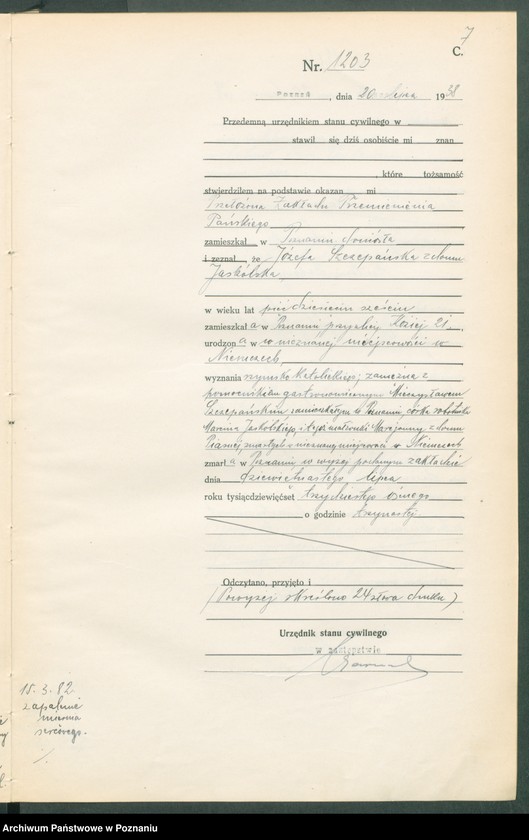 7
C.
Nr. 1203
Poznań, dnia 20 lipca 1938
Przedemną urzędnikiem stanu cywilnego w
stawił się dziś osobiście mi znan
, które tożsamość
stwierdziłem na podstawie okazan mi
Przełożona Zakładu Przemienienia
Pańskiego
zamieszkał w Poznaniu doniosła
i zeznał, że Józefa Szczepańska z domu
Jaskólska,
w wieku lat pięćdziesięciu sześciu
zamieszkał a w Poznaniu przy ulicy 21,
urodzon a w w nieznanej miejscowości w
Niemczech,
wyznania rzymsko katolickiego; zamężna z
pomocnikiem gastronomicznym Mieczysławem
Szczepańskim zamieszkałym w Poznaniu, córka robotnika
Marcina Jaskólskiego, i tegoż małżonki Marjanny z domu
zmarłych w nieznanej miejscowości w Niemczech
zmarł a w Poznaniu w wyżej podanym zakładzie
dnia dziewiętnastego lipca
roku tysiącdziewięćset trzydziestego ósmego
o godzinie trzynastej
Odczytano, przyjęto i
(Powyżej skreślono 24 słowa druku)
Urzędnik stanu cywilnego
w zastępstwie
15. 3. 82
zapalenie
mięśnia
sercowego.
Archiwum Państwowe w Poznaniu